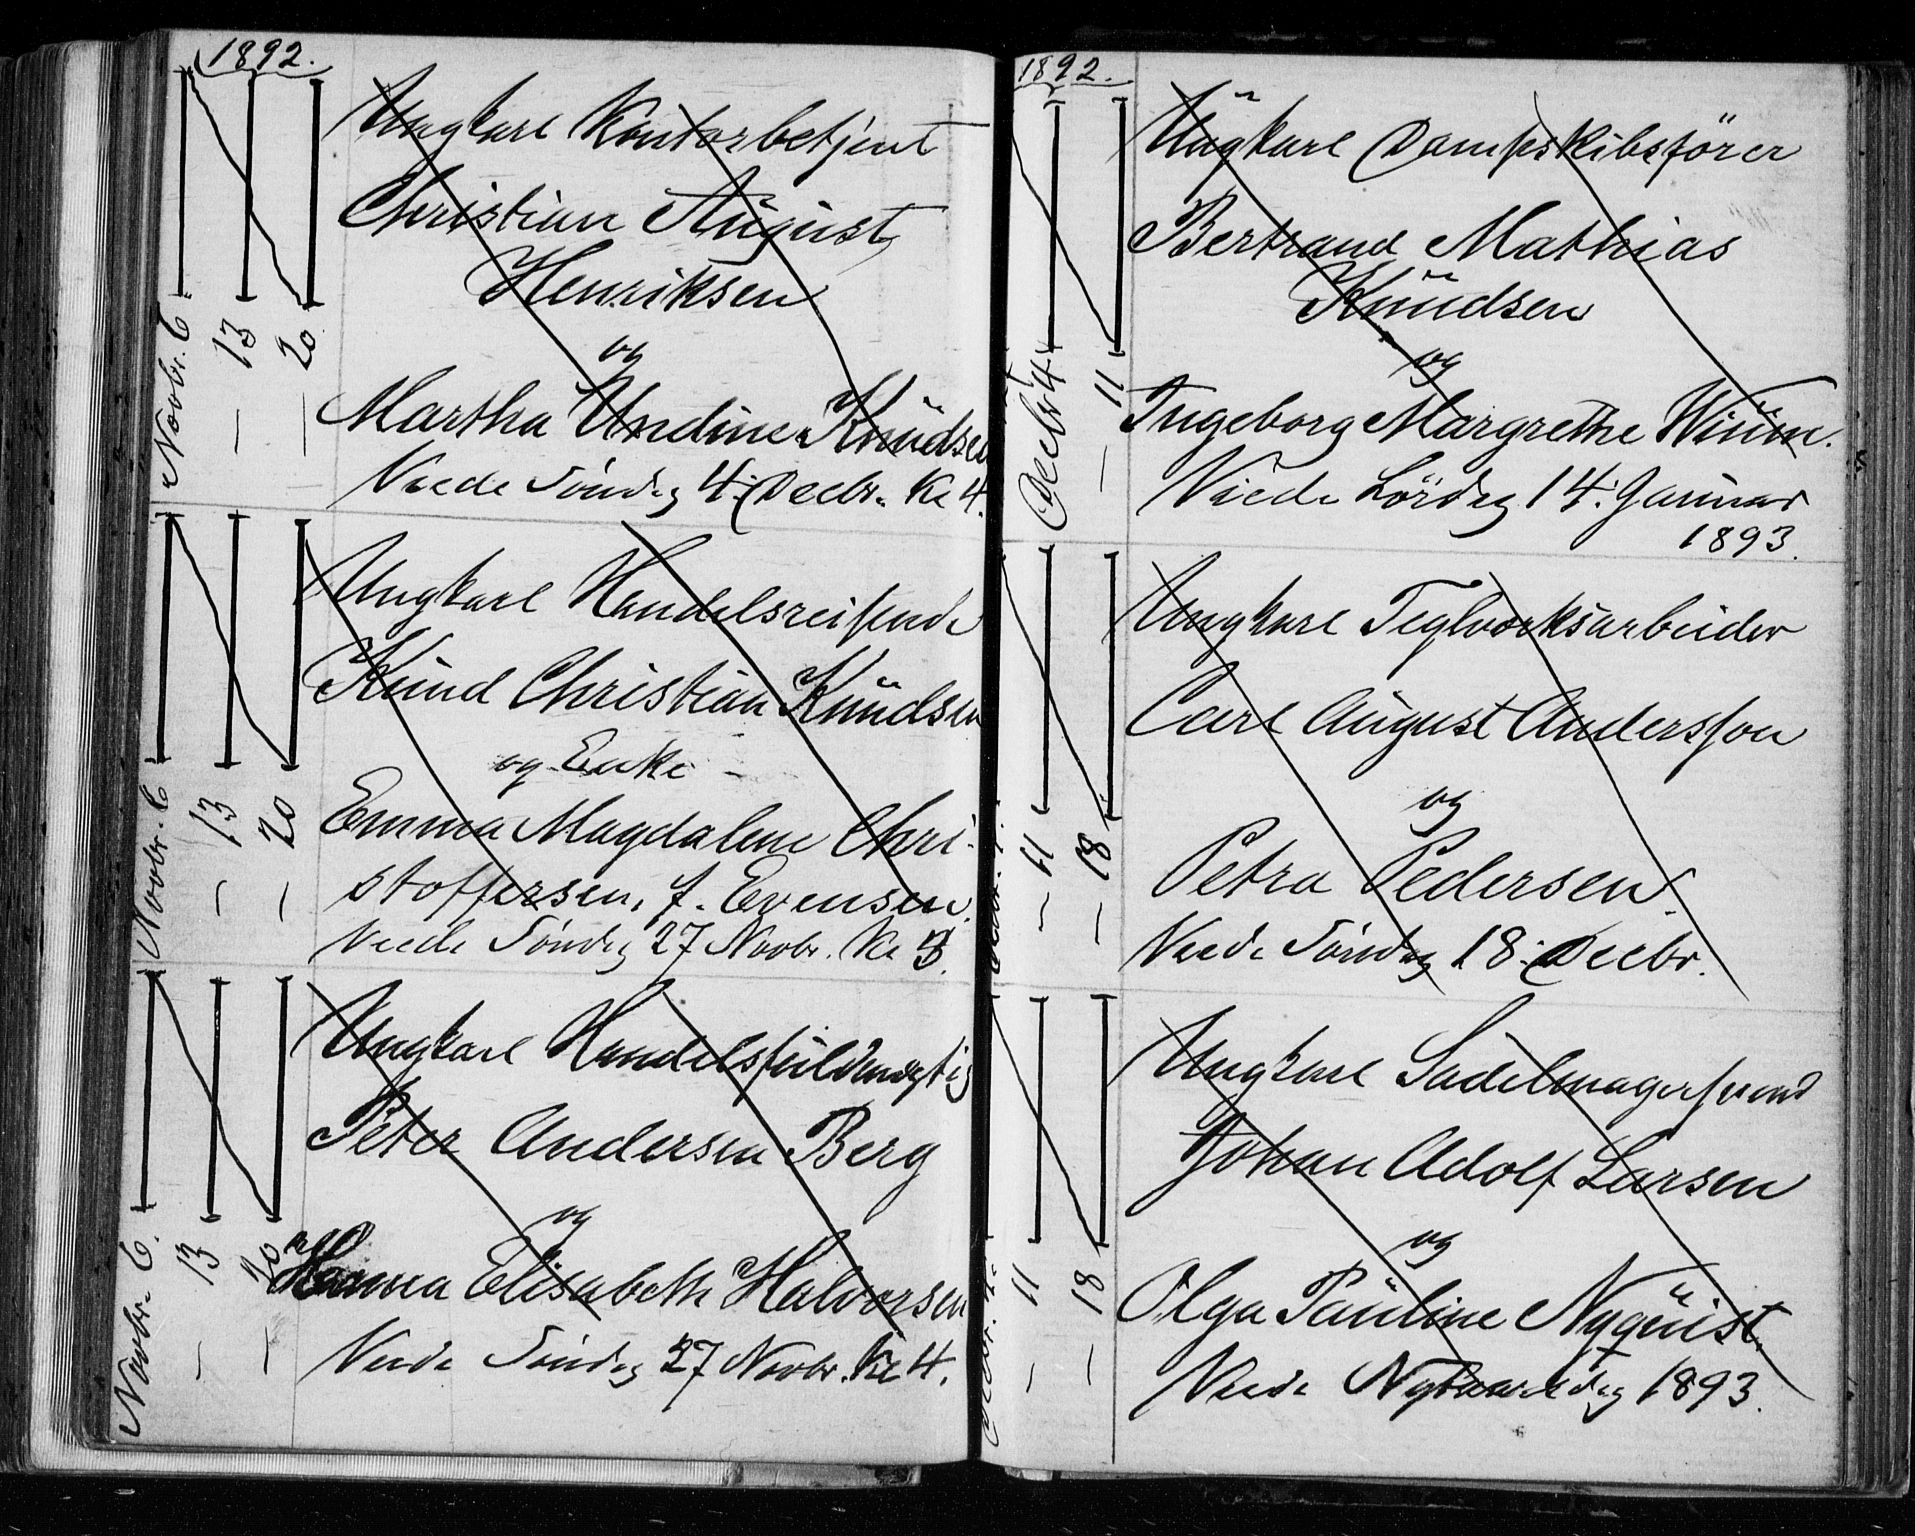 1892.
Novbr. 6
— 13
— 20
Ungkarl Kontorbetjent
Christian August
Henriksen
og
Martha Undine Knudsen
Viede Søndag 4. Decbr. Kl 4.
Novbr. 6
— 13
— 20
Ungkarl Handelsreisende
Knud Christian Knudsen
og Enke
Emma Magdalene Chri-
stoffersen, f. Evensen.
Viede Søndag 27 Novbr. Kl 3.
Novbr. 6.
— 13
— 20
Ungkarl Handelsfuldmægtig
Peter Andersen Berg
og
Hanna Elisabeth Halvorsen
Viede Søndag 27 Novbr. Kl 4.
1892.
Decbr 4
— 11
Ungkarl Dampskibsfører
Bertrand Mathias
Knudsen
og
Ingeborg Margrethe Wium.
Viede Lørdag 14. Januar
1893.
— 11
— 18
Ungkarl Teglverksarbeider
Carl August Andersson
og
Petra Pedersen.
Viede Søndag 18. Decbr.
— 11
— 18
Ungkarl Sadelmagersvend
Johan Adolf Larsen
og
Olga Pauline Nyquist.
Viede Nytaarsdag 1893.